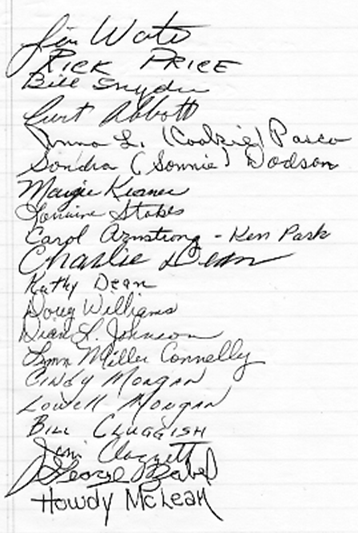 Jim Wate
RICK PRICE
Bill Snyder
Curt Abbott
Anna L. (Cookie) Pasco
Sondra (Sonnie) Dodson
Margie
Lorraine Stokes
Carol Armstrong - Ken Park
Charlie Dean
Kathy Dean
Doug Williams
Dean L. Johnson
Lynn Miller Connelly
CINDY MORGAN
LOWELL MORGAN
BILL CLUGGISH
Jim Claggett
George Babel
Howdy McLean